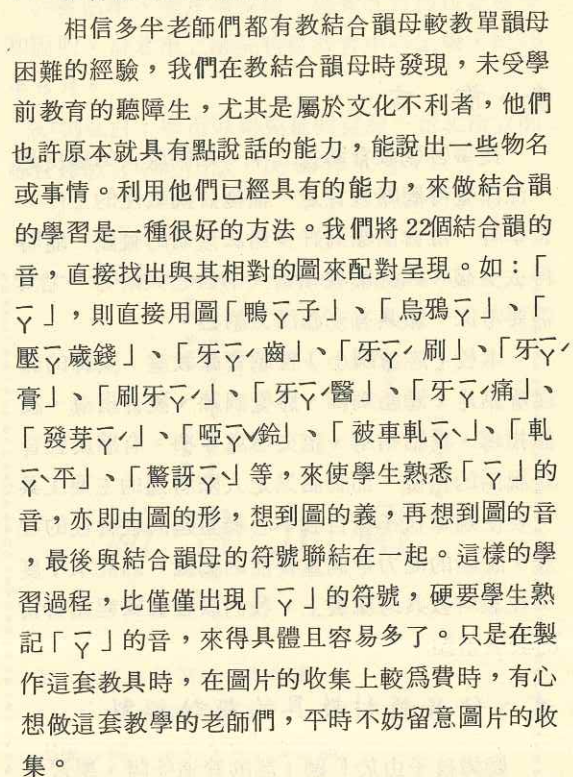 相信多半老師們都有教結合韻母較教單韻母
困難的經驗，我們在教結合韻母時發現，未受學
前教育的聽障生，尤其是屬於文化不利者，他們
也許原本就具有點說話的能力，能說出一些物名
或事情。利用他們已經具有的能力，來做結合韻
的學習是一種很好的方法。我們將 22個結合韻的
音，直接找出與其相對的圖來配對呈現。如：「
ㄧㄚ」，則直接用圖「鴨ㄧㄚ子」、「烏鴉ㄧㄚ」、「
壓ㄧㄚ歲錢」、「牙ㄧㄚˊ齒」、「牙ㄧㄚˊ刷」、「牙ㄧㄚˊ
膏」、「刷牙ㄧㄚˊ」、「牙ㄧㄚˊ醫」、「牙ㄧㄚˊ痛」、
「發芽ㄧㄚˊ」、「啞ㄧㄚˇ鈴」、「被車軋ㄧㄚˋ」、「軋
ㄧㄚˋ平」、「驚訝ㄧㄚˋ」等，來使學生熟悉「ㄧㄚ」的
音，亦即由圖的形，想到圖的義，再想到圖的音
，最後與結合韻母的符號聯結在一起。這樣的學
習過程，比僅僅出現「ㄧㄚ」的符號，硬要學生熟
記「ㄧㄚ」的音，來得具體且容易多了。只是在製
作這套教具時，在圖片的收集上較為費時，有心
想做這套教學的老師們，平時不妨留意圖片的收
集。